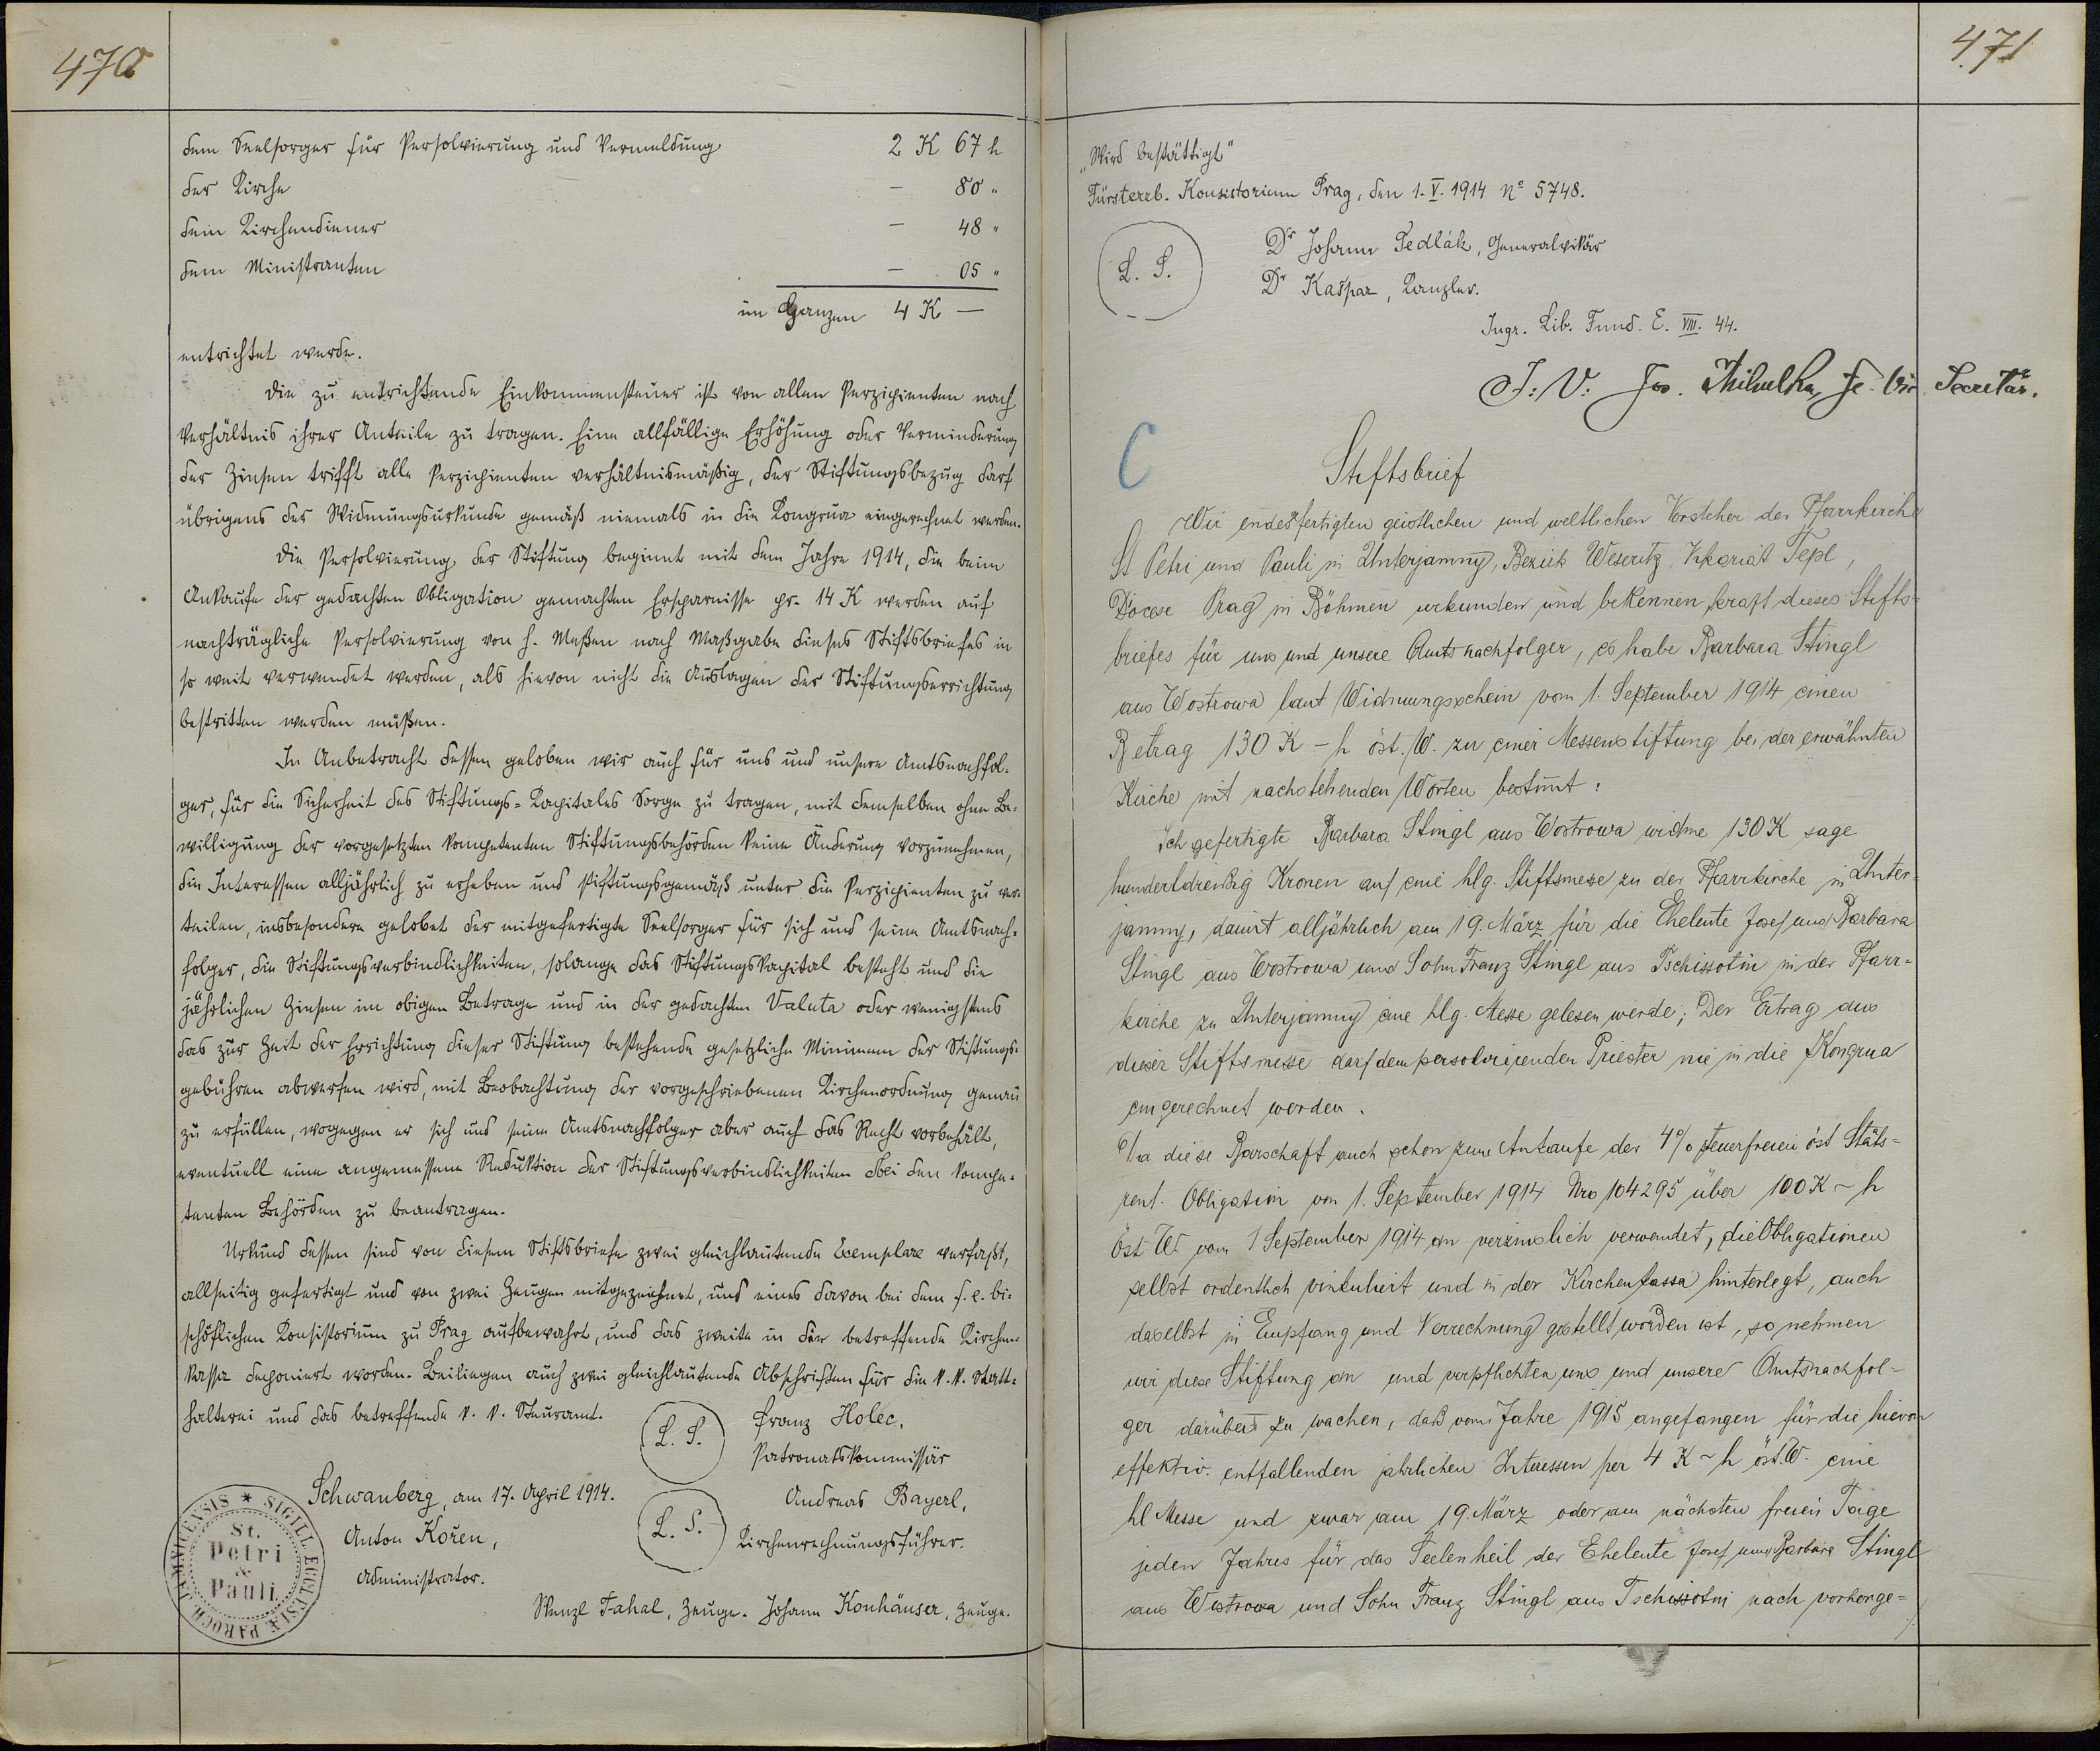 470
dem Seelsorger für Persolvierung und Vermeldung 2 K 67 h
der Kirche — 80 "
dem Kirchendiener — 48 "
dem Ministranten — 05 "
im Ganzen 4 K —
entrichtet werde.
Die zu entrichtende Einkommensteuer ist von allen Perzipienten nach
Verhältnis ihrer Anteile zu tragen. Eine allfällige Erhöhung oder Verminderung
der Zinsen trifft alle Perzipienten verhältnismäßig, der Stiftungsbezug darf
übrigens der Widmungsurkunde gemäß niemals in die Kongrua eingerechnet werden.
Die Persolvierung der Stiftung beginnt mit dem Jahre 1914, die beim
Ankaufe der gedachten Obligation gemachten Ersparnisse pr. 14 K werden auf
nachträgliche Persolvierung von h. Meßen nach Maßgabe dieses Stiftsbriefes in
so weit verwendet werden, als hievon nicht die Auslagen der Stiftungserrichtung
bestritten werden müßen.
In Anbetracht dessen geloben wir auch für uns und unsere Amtsnachfol-
ger, für die Sicherheit des Stiftungs-Kapitales Sorge zu tragen, mit demselben ohne Be-
willigung der vorgesetzten kompetenten Stiftungsbehörden keine Änderung vorzunehmen,
die Interessen alljährlich zu erheben und stiftungsgemäß unter die Perzipienten zu ver-
teilen, insbesondere gelobet der mitgefertigte Seelsorger für sich und seine Amtsnach-
folger, die Stiftungsverbindlichkeiten, solange das Stiftungskapital besteht und die
jährlichen Zinsen im obigen Betrage und in der gedachten Valuta oder wenigstens
das zur Zeit der Errichtung dieser Stiftung bestehende gesetzliche Minimum der Stiftungs-
gebühren abwerfen wird, mit Beobachtung der vorgeschriebenen Kirchenordnung genau
zu erfüllen, wogegen er sich und seine Amtsnachfolger aber auch das Recht vorbehält,
eventuell eine angemessene Reduktion der Stiftungsverbindlichkeiten bei den kompe-
tenten Behörden zu beantragen.
Urkund dessen sind von diesem Stiftsbriefe zwei gleichlautende Exemplare verfaßt,
allseitig gefertigt und von zwei Zeugen mitgezeichnet, und eines davon bei dem f. e. bi-
schöflichen Konsistorium zu Prag aufbewahrt, und das zweite in der betreffende Kirchen-
kassa deponiert worden. Beiliegen auch zwei gleichlautende Abschriften für die k.k. Statt-
halterei und das betreffende k. k. Steueramt.
L. S. Franz Holec,
Patronatskommissär
Schwanberg, am 17. April 1914.
Anton Kořen,
Administrator.
L. S. Andreas Bayerl,
Kirchenrechnungsführer.
Wenzl Fahal, Zeuge. Johann Konhäuser, Zeuge.
SIGILL ECCLESIÆ PAROCH. JAMNICENSIS
St.
Petri
&
Pauli
471
"Wird bestättigt"
Fürsterzb. Konsistorium Prag, den 1. V. 1914 No 5748.
L. S.
Dr Johann Sedlák, Generalvikär
Dr Kašpar, Kanzler.
Ingr. Lib. Fund. E. VIII. 44.
I: V: Jos. Mikulka, Secretär.
C
Stiftsbrief
Wir endesfertigten geistlichen und weltlichen Vorsteher der Pfarrkirche
St Petri und Pauli in Unterjamny, Bezirk Weseritz, Vikariat Tepl,
Diöcese Prag in Böhmen urkunden und bekennen kraft dieses Stifts-
briefes für uns und unsere Amtsnachfolger, es habe Barbara Stingl
aus Wostrowa laut Widmungsschein vom 1. September 1914 einen
Betrag 130 K – h öst. W. zu einer Messenstiftung bei der erwähnten
Kirche mit nachstehenden Worten bestimt:
Ich gefertigte Barbara Stingl aus Wostrowa widme 130 K sage
hundertdreißig Kronen auf eine hlg. Stiftsmesse zu der Pfarrkirche in Unter-
jamny, damit alljährlich am 19. März für die Eheleute Josef und Barbara
Stingl aus Wostrowa und Sohn Franz Stingl aus Tschissotin in der Pfarr-
kirche zu Unterjamny eine hlg. Messe gelesen werde; Der Ertrag aus
dieser Stiftsmesse darf dem persolvirenden Priester nie in die Kongrua
eingerechnet werden.
Da diese Barschaft auch schon zum Ankaufe der 4% steuerfreien öst Stats-
rent. Obligation vom 1. September 1914 Nro 104295 über 100 K – h
öst W vom 1 September 1914 an verzinslich verwendet, die Obligationen
selbst ordentlich vinkuliert und in der Kirchenkassa hinterlegt, auch
daselbst in Empfang und Verrechnung gestellt worden ist, so nehmen
wir diese Stiftung an und verpflichten uns und unsere Amtsnachfol-
ger darüber zu wachen, daß vom Jahre 1915 angefangen für die hievon
effektiv. entfallenden jährlichen Interessen per 4 K – h öst. W. eine
hl Messe und zwar am 19. März oder am nächsten freien Tage
jeden Jahres für das Seelenheil der Eheleute Josef und Barbara Stingl
aus Wostrowa und Sohn Franz Stingl aus Tschissotin nach vorherge-